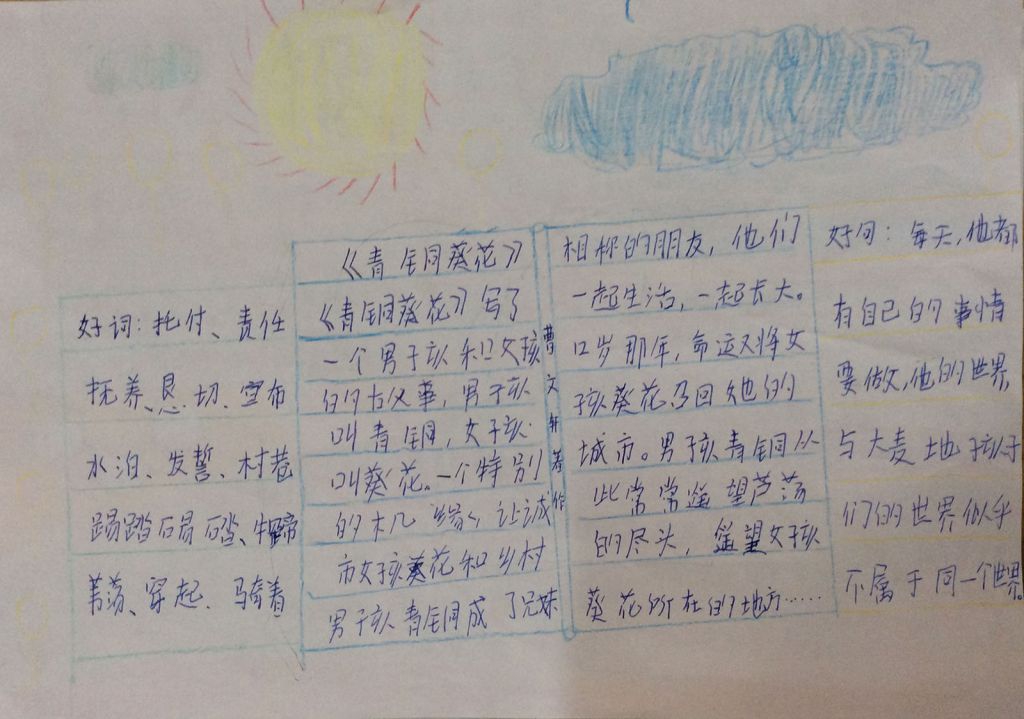 好词：托付、责任
抚养、恳、切、宣布
水泊、发誓、村巷
蹋踏 牛蹄
苇荡、穿起、骑着
《青铜葵花》
《青铜葵花》写了
一个男孩和女孩
的故事，男孩
叫青铜，女孩
叫葵花。一个特别
的机缘，让城
市女孩葵花和乡村
男孩青铜成了兄妹
曹文轩著作
相称的朋友，他们
一起生活，一起长大。
12岁那年，命运又将女
孩葵花召回她的
城市。男孩青铜从
此常常遥望芦荡
的尽头，遥望女孩
葵花所在的地方……
好句：每天，他都
有自己的事情
要做，他的世界，
与大麦地孩子
们的世界似乎
不属于同一个世界。